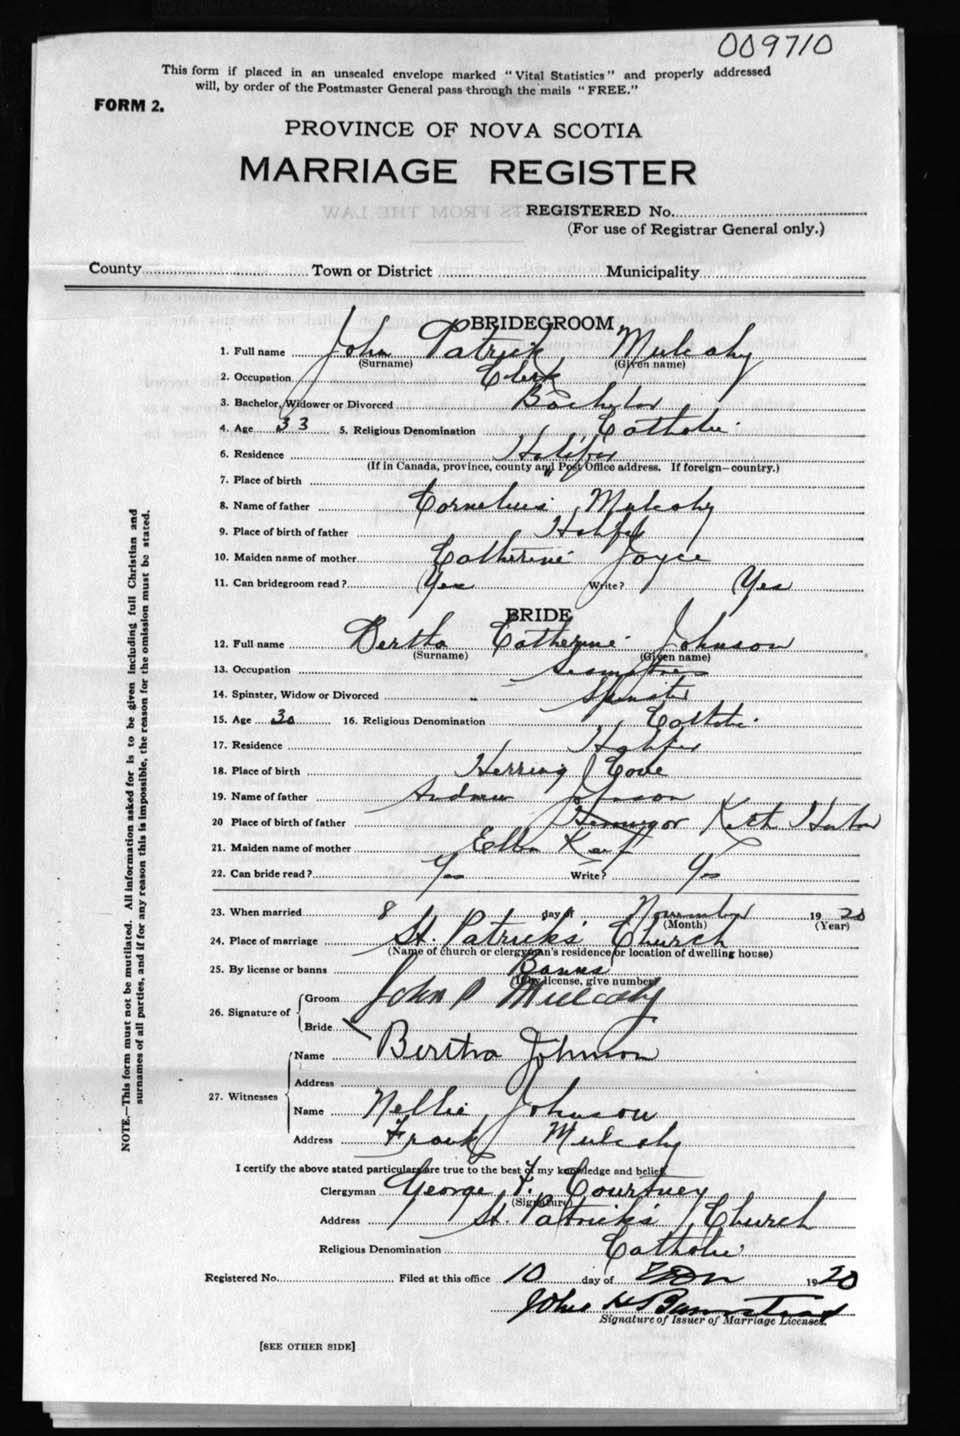 009710
This form if placed in an unsealed envelope marked "Vital Statistics" and properly addressed
will, by order of the Postmaster General pass through the mails "FREE."
FORM 2.
PROVINCE OF NOVA SCOTIA
MARRIAGE REGISTER
REGISTERED No.
(For use of Registrar General only.)
County Town or District Municipality
BRIDEGROOM
1. Full name John Patrick Mulcahy
(Surname) (Given name)
2. Occupation Clerk
3. Bachelor, Widower or Divorced Bachelor
4. Age 33 5. Religious Denomination Catholic
6. Residence Halifax
(If in Canada, province, county and Post Office address. If foreign—country.)
7. Place of birth "
8. Name of father Cornelius Mulcahy
9. Place of birth of father Halifax
10. Maiden name of mother Catherine Joyce
11. Can bridegroom read? Yes Write? Yes
BRIDE
12. Full name Bertha Catherine Johnson
(Surname) (Given name)
13. Occupation Seamstress
14. Spinster, Widow or Divorced Spinster
15. Age 30 16. Religious Denomination Catholic
17. Residence Halifax
18. Place of birth Herring Cove
19. Name of father Andrew Johnson
20 Place of birth of father Ketch Harbor
21. Maiden name of mother Ellen
22. Can bride read? Yes Write? Yes
23. When married 8 day of November 1920
(Month) (Year)
24. Place of marriage St. Patrick's Church
(Name of church or clergyman's residence or location of dwelling house)
25. By license or banns Banns
(If by license, give number)
26. Signature of Groom John P Mulcahy
Bride
Name Bertha Johnson
Address
27. Witnesses
Name Nellie Johnson
Address Frank Mulcahy
I certify the above stated particulars are true to the best of my knowledge and belief.
Clergyman George F. Courtney
(Signature)
Address St. Patrick's Church
Religious Denomination Catholic
Registered No. Filed at this office 10 day of Nov 1920
John H Barnstead
Signature of Issuer of Marriage Licenses.
[SEE OTHER SIDE]
NOTE.—This form must not be mutilated. All information asked for is to be given including full Christian and
surnames of all parties, and if for any reason this is impossible, the reason for the omission must be stated.